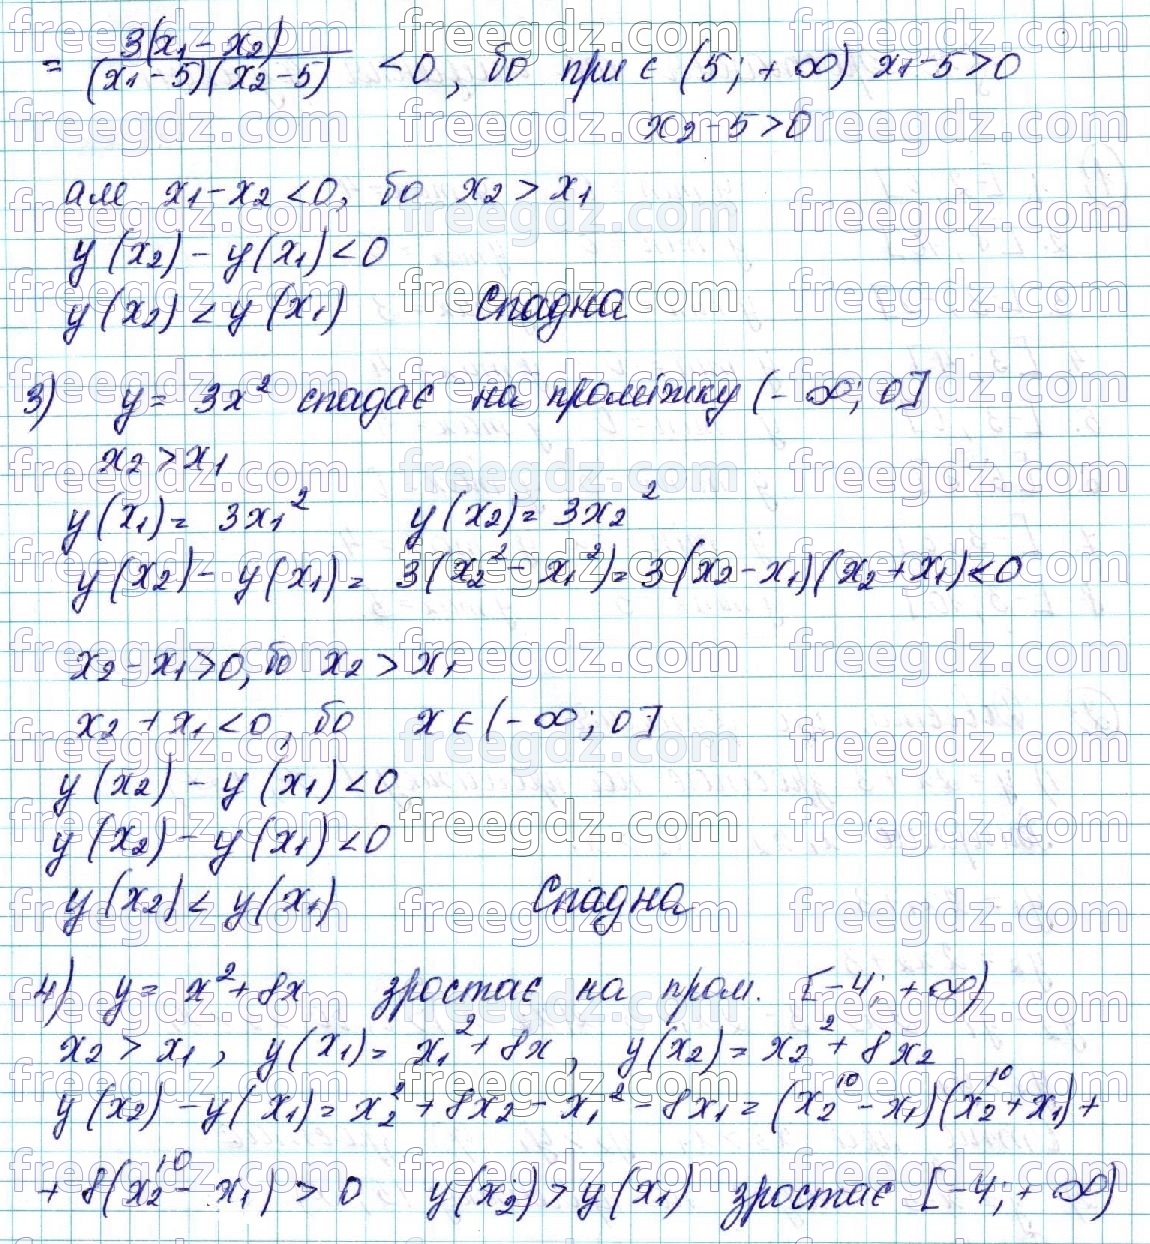 = 3(x₁ - x₂) / (x₁ - 5)(x₂ - 5) < 0, бо при є (5; + ∞) x₁ - 5 > 0
x₂ - 5 > 0
але x₁ - x₂ < 0, бо x₂ > x₁
y(x₂) - y(x₁) < 0
y(x₂) < y(x₁) Спадна
3) y = 3x² спадає на проміжку (- ∞; 0]
x₂ > x₁
y(x₁) = 3x₁² y(x₂) = 3x₂²
y(x₂) - y(x₁) = 3(x₂² - x₁²) = 3(x₂ - x₁)(x₂ + x₁) < 0
x₂ - x₁ > 0, бо x₂ > x₁
x₂ + x₁ < 0, бо x ∈ (- ∞; 0]
y(x₂) - y(x₁) < 0
y(x₂) - y(x₁) < 0
y(x₂) < y(x₁) Спадна
4) y = x² + 8x зростає на пром. [-4; + ∞)
x₂ > x₁, y(x₁) = x₁² + 8x, y(x₂) = x₂² + 8x₂
y(x₂) - y(x₁) = x₂² + 8x₂ - x₁² - 8x₁ = (x₂ - x₁)(x₂ + x₁) +
+ 8(x₂ - x₁) > 0 y(x₂) > y(x₁) зростає [-4; + ∞)
freegdz.com